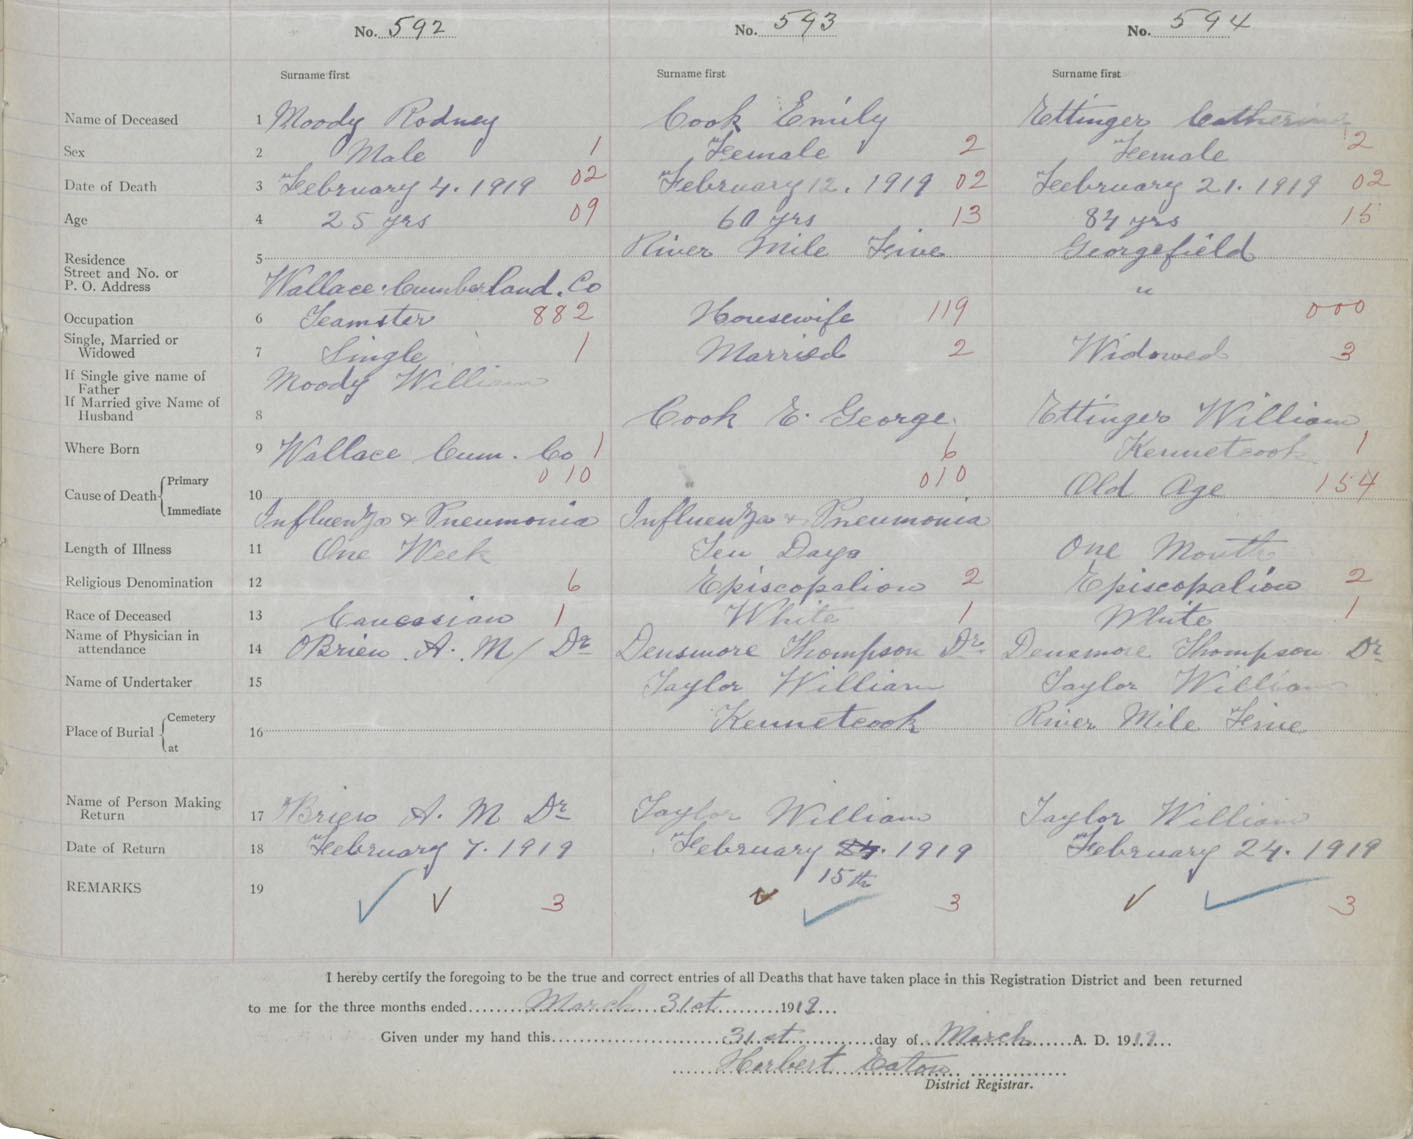 No. 592 No. 593 No. 594
Surname first Surname first Surname first
Name of Deceased 1 Moody Rodney Cook Emily Ettinger Catherine
Sex 2 Male 1 Female 2 Female 2
Date of Death 3 February 4. 1919 02 February 12. 1919 02 February 21. 1919 02
Age 4 25 yrs 09 60 yrs 13 84 yrs 15
Residence 5 River Mile Five Georgefield
Street and No. or
P. O. Address Wallace Cumberland. Co "
Occupation 6 Teamster 882 Housewife 119 000
Single, Married or
Widowed 7 Single 1 Married 2 Widowed 3
If Single give name of
Father Moody William
If Married give Name of
Husband 8 Cook E. George. Ettinger William
Where Born 9 Wallace Cum. Co 1 6 Kennetcook 1
Cause of Death Primary 010 010 Old Age 154
10
Immediate Influenza & Pneumonia Influenza & Pneumonia
Length of Illness 11 One Week Ten Days One Month
Religious Denomination 12 6 Episcopalion 2 Episcopalion 2
Race of Deceased 13 Caucasian 1 White 1 White 1
Name of Physician in
attendance 14 OBrien A. M Dr Densmore Thompson Dr. Densmore Thompson Dr
Name of Undertaker 15 Taylor William Taylor William
Place of Burial Cemetery Kennetcook River Mile Five
16
at
Name of Person Making
Return 17 OBrien A. M Dr Taylor William Taylor William
Date of Return 18 February 7. 1919 February 24. 1919 February 24. 1919
15th
REMARKS 19 3 3 3
I hereby certify the foregoing to be the true and correct entries of all Deaths that have taken place in this Registration District and been returned
to me for the three months ended March 31st 1919
Given under my hand this 31st day of March A. D. 1919
Herbert Eaton
District Registrar.